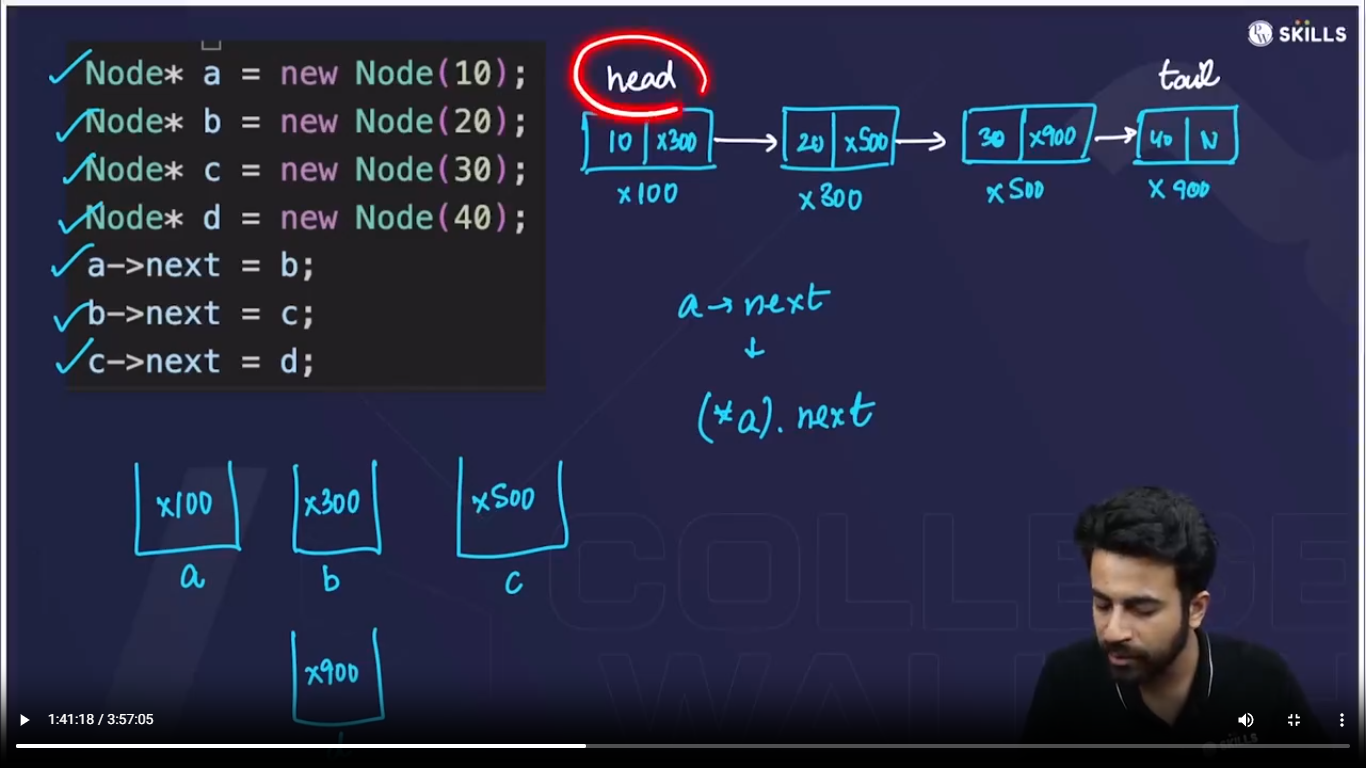 SKILLS
Node* a = new Node(10);
Node* b = new Node(20);
Node* c = new Node(30);
Node* d = new Node(40);
a->next = b;
b->next = c;
c->next = d;
head
tail
10 x300
20 x500
30 x900
40 N
x100
x300
x500
x900
a → next
(*a). next
x100
x300
x500
a
b
c
x900
COLLEGE
WALLAH
1:41:18 / 3:57:05
SKILLS